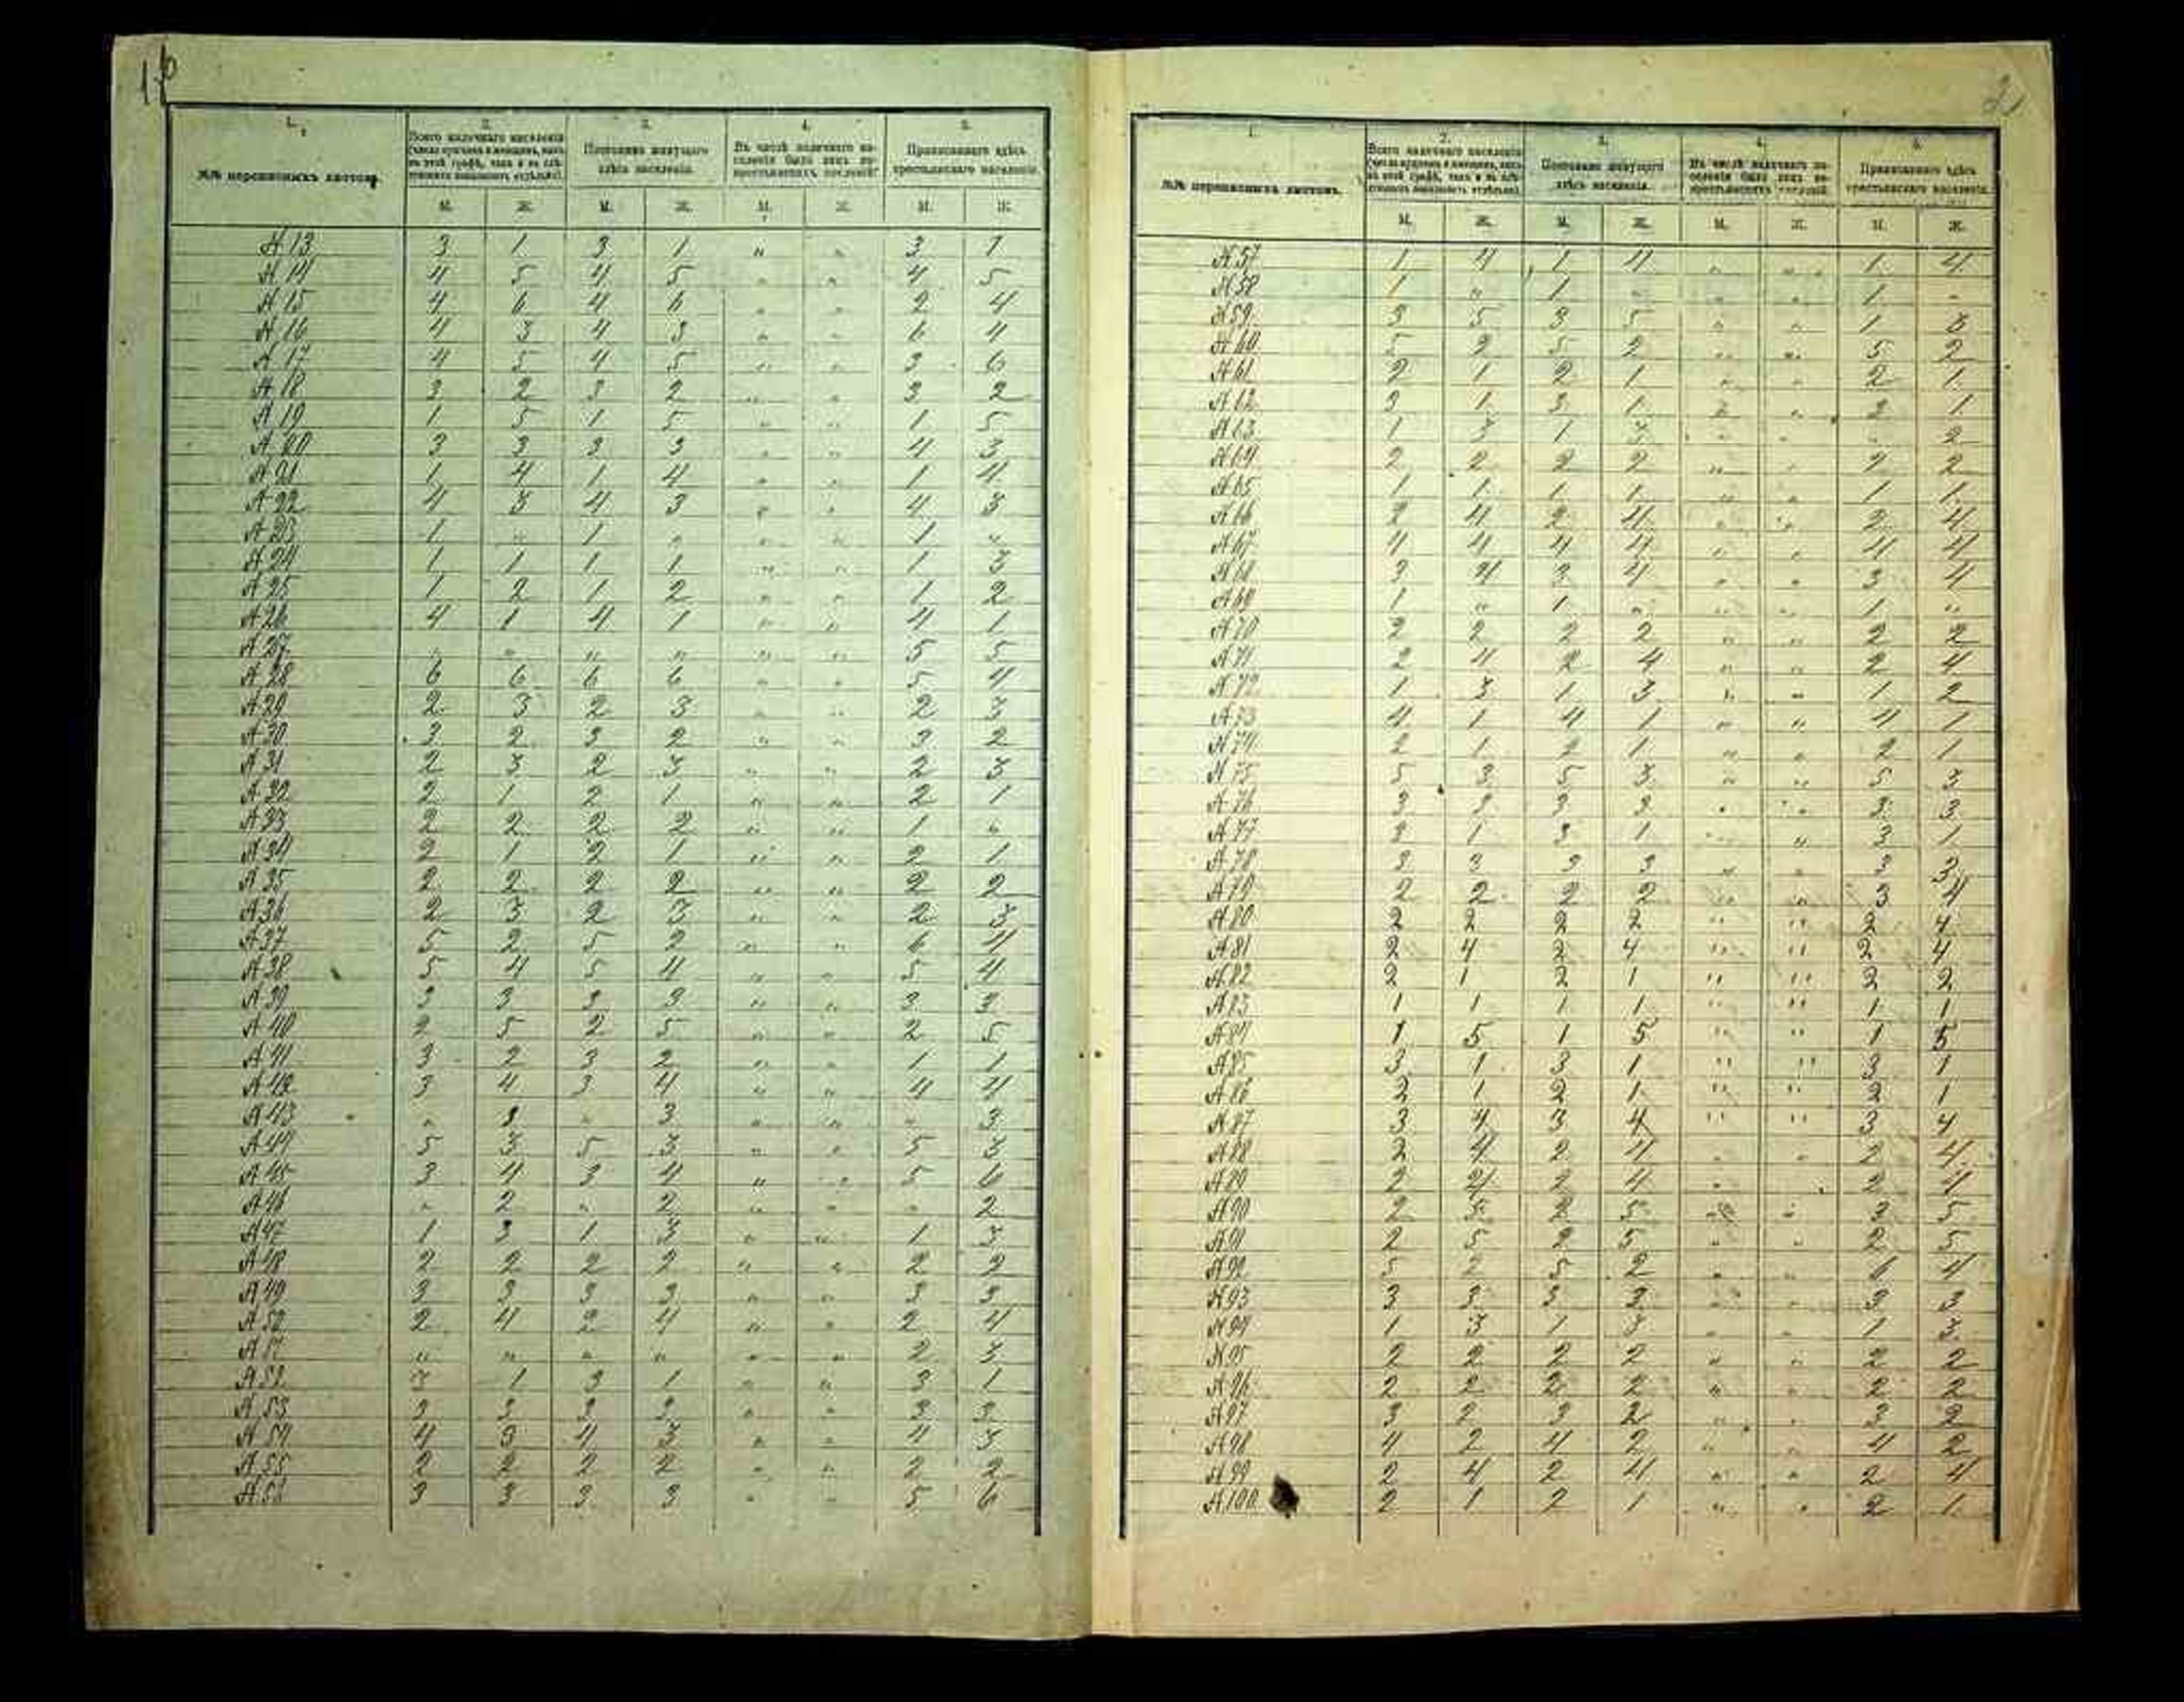 1.
2.
3.
4.
5.
№№ переписныхъ листовъ.
Всего наличнаго населенія (число мужчинъ и женщинъ, какъ въ этой графѣ, такъ и въ слѣ-
Постоянно живущаго здѣсь населенія.
Въ числѣ наличнаго на-
селенія было лицъ не-
крестьянскихъ сословій
Приписаннаго здѣсь крестьянскаго населенія.
М. Ж. М. Ж. М. Ж. М. Ж.
№ 13 3 1 3 1 " " 3 1
№ 14 4 5 4 5 " " 4 5
№ 15 4 6 4 6 " " 2 4
№ 16 4 3 4 3 " " 6 4
№ 17 4 5 4 5 " " 3 6
№ 18 3 2 3 2 " " 3 2
№ 19 1 5 1 5 " " 1 5
№ 20 3 3 3 3 " " 4 3
№ 21 1 4 1 4 " " 1 4
№ 22 4 3 4 3 " " 4 3
№ 23 1 " 1 " " " 1 "
№ 24 1 1 1 1 " " 1 3
№ 25 1 2 1 2 " " 1 2
№ 26 4 1 4 1 " " 4 1
№ 27 " " " " " " 5 5
№ 28 6 6 6 6 " " 5 4
№ 29 2 3 2 3 " " 2 3
№ 30 3 2 3 2 " " 3 2
№ 31 2 3 2 3 " " 2 3
№ 32 2 1 2 1 " " 2 1
№ 33 2 2 2 2 " " 1 "
№ 34 2 1 2 1 " " 2 1
№ 35 2 2 2 2 " " 2 2
№ 36 2 3 2 3 " " 2 3
№ 37 5 2 5 2 " " 6 4
№ 38 5 4 5 4 " " 5 4
№ 39 3 3 3 3 " " 3 3
№ 40 2 5 2 5 " " 2 5
№ 41 3 2 3 2 " " 1 1
№ 42 3 4 3 4 " " 4 4
№ 43 " 3 " 3 " " " 3
№ 44 5 3 5 3 " " 5 3
№ 45 3 4 3 4 " " 5 6
№ 46 " 2 " 2 " " " 2
№ 47 1 3 1 3 " " 1 3
№ 48 2 2 2 2 " " 2 2
№ 49 3 3 3 3 " " 3 3
№ 50 2 4 2 4 " " 2 4
№ 51 " " " " " " 2 3
№ 52 3 1 3 1 " " 3 1
№ 53 3 3 3 3 " " 3 3
№ 54 4 3 4 3 " " 4 3
№ 55 2 2 2 2 " " 2 2
№ 56 3 3 3 3 " " 5 6
1.
2.
3.
4.
5.
№№ переписныхъ листовъ.
Всего наличнаго населенія (число мужчинъ и женщинъ, какъ въ этой графѣ, такъ и въ слѣ-
Постоянно живущаго здѣсь населенія.
Въ числѣ наличнаго на-
селенія было лицъ не-
крестьянскихъ сословій.
Приписаннаго здѣсь крестьянскаго населенія.
М. Ж. М. Ж. М. Ж. М. Ж.
№ 57 1 4 1 4 " " 1 4
№ 58 1 " 1 " " " 1 "
№ 59 3 5 3 5 " " 1 3
№ 60 5 2 5 2 " " 5 2
№ 61 2 1 2 1 " " 2 1
№ 62 3 1 3 1 " 3 1
№ 63 1 3 1 3 " " " 2
№ 64 2 2 2 2 " " 2 2
№ 65 1 1 1 1 " " 1 1
№ 66 2 4 2 4 " " 2 4
№ 67 4 4 4 4 " " 4 4
№ 68 3 4 3 4 " " 3 4
№ 69 1 " 1 " " " 1 "
№ 70 2 2 2 2 " " 2 2
№ 71 2 4 2 4 " " 2 4
№ 72 1 3 1 3 " " 1 2
№ 73 4 1 4 1 " " 4 1
№ 74 2 1 2 1 " " 2 1
№ 75 5 3 5 3 " " 5 3
№ 76 3 3 3 3 " " 3 3
№ 77 3 1 3 1 " " 3 1
№ 78 3 3 3 3 " " 3 3
№ 79 2 2 2 2 " " 3 4
№ 80 2 2 2 2 " " 2 4
№ 81 2 4 2 4 " " 2 4
№ 82 2 1 2 1 " " 2 2
№ 83 1 1 1 1 " " 1 1
№ 84 1 5 1 5 " " 1 5
№ 85 3 1 3 1 " " 3 1
№ 86 2 1 2 1 " " 2 1
№ 87 3 4 3 4 " " 3 4
№ 88 2 4 2 4 " " 2 4
№ 89 2 4 2 4 " 2 4
№ 90 2 5 2 5 " " 3 5
№ 91 2 5 2 5 " " 2 5
№ 92 5 2 5 2 " " 6 4
№ 93 3 3 3 3 " " 3 3
№ 94 1 3 1 3 " " 1 3
№ 95 2 2 2 2 " " 2 2
№ 96 2 2 2 2 " " 2 2
№ 97 3 2 3 2 " " 3 2
№ 98 4 2 4 2 " " 4 2
№ 99 2 4 2 4 " " 2 4
№ 100 2 1 2 1 " " 2 1